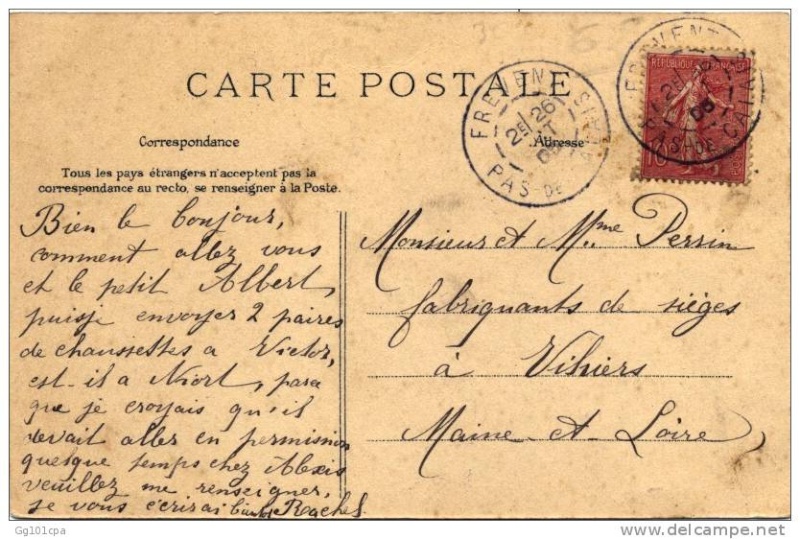 CARTE POSTALE
Correspondance
Adresse
Tous les pays étrangers n'acceptent pas la
correspondance au recto, se renseigner à la Poste.
FREVENT
26
PAS-DE-CALAIS
FREVENT
PAS-DE-CALAIS
REPUBLIQUE FRANÇAISE
10
Bien le bonjour,
comment allez vous
et le petit Albert,
puisje envoyer 2 paires
de chaussettes a Victor,
est-il a Niort, parce
que je croyais qu'il
devait aller en permission
quesque temps chez Alexis
veuillez me renseigner,
je vous écrirai Rachel
Monsieur et Mme Perrin
fabriquants de sièges
à Vihiers
Maine-et-Loire
Gg101cpa
delcampe.net